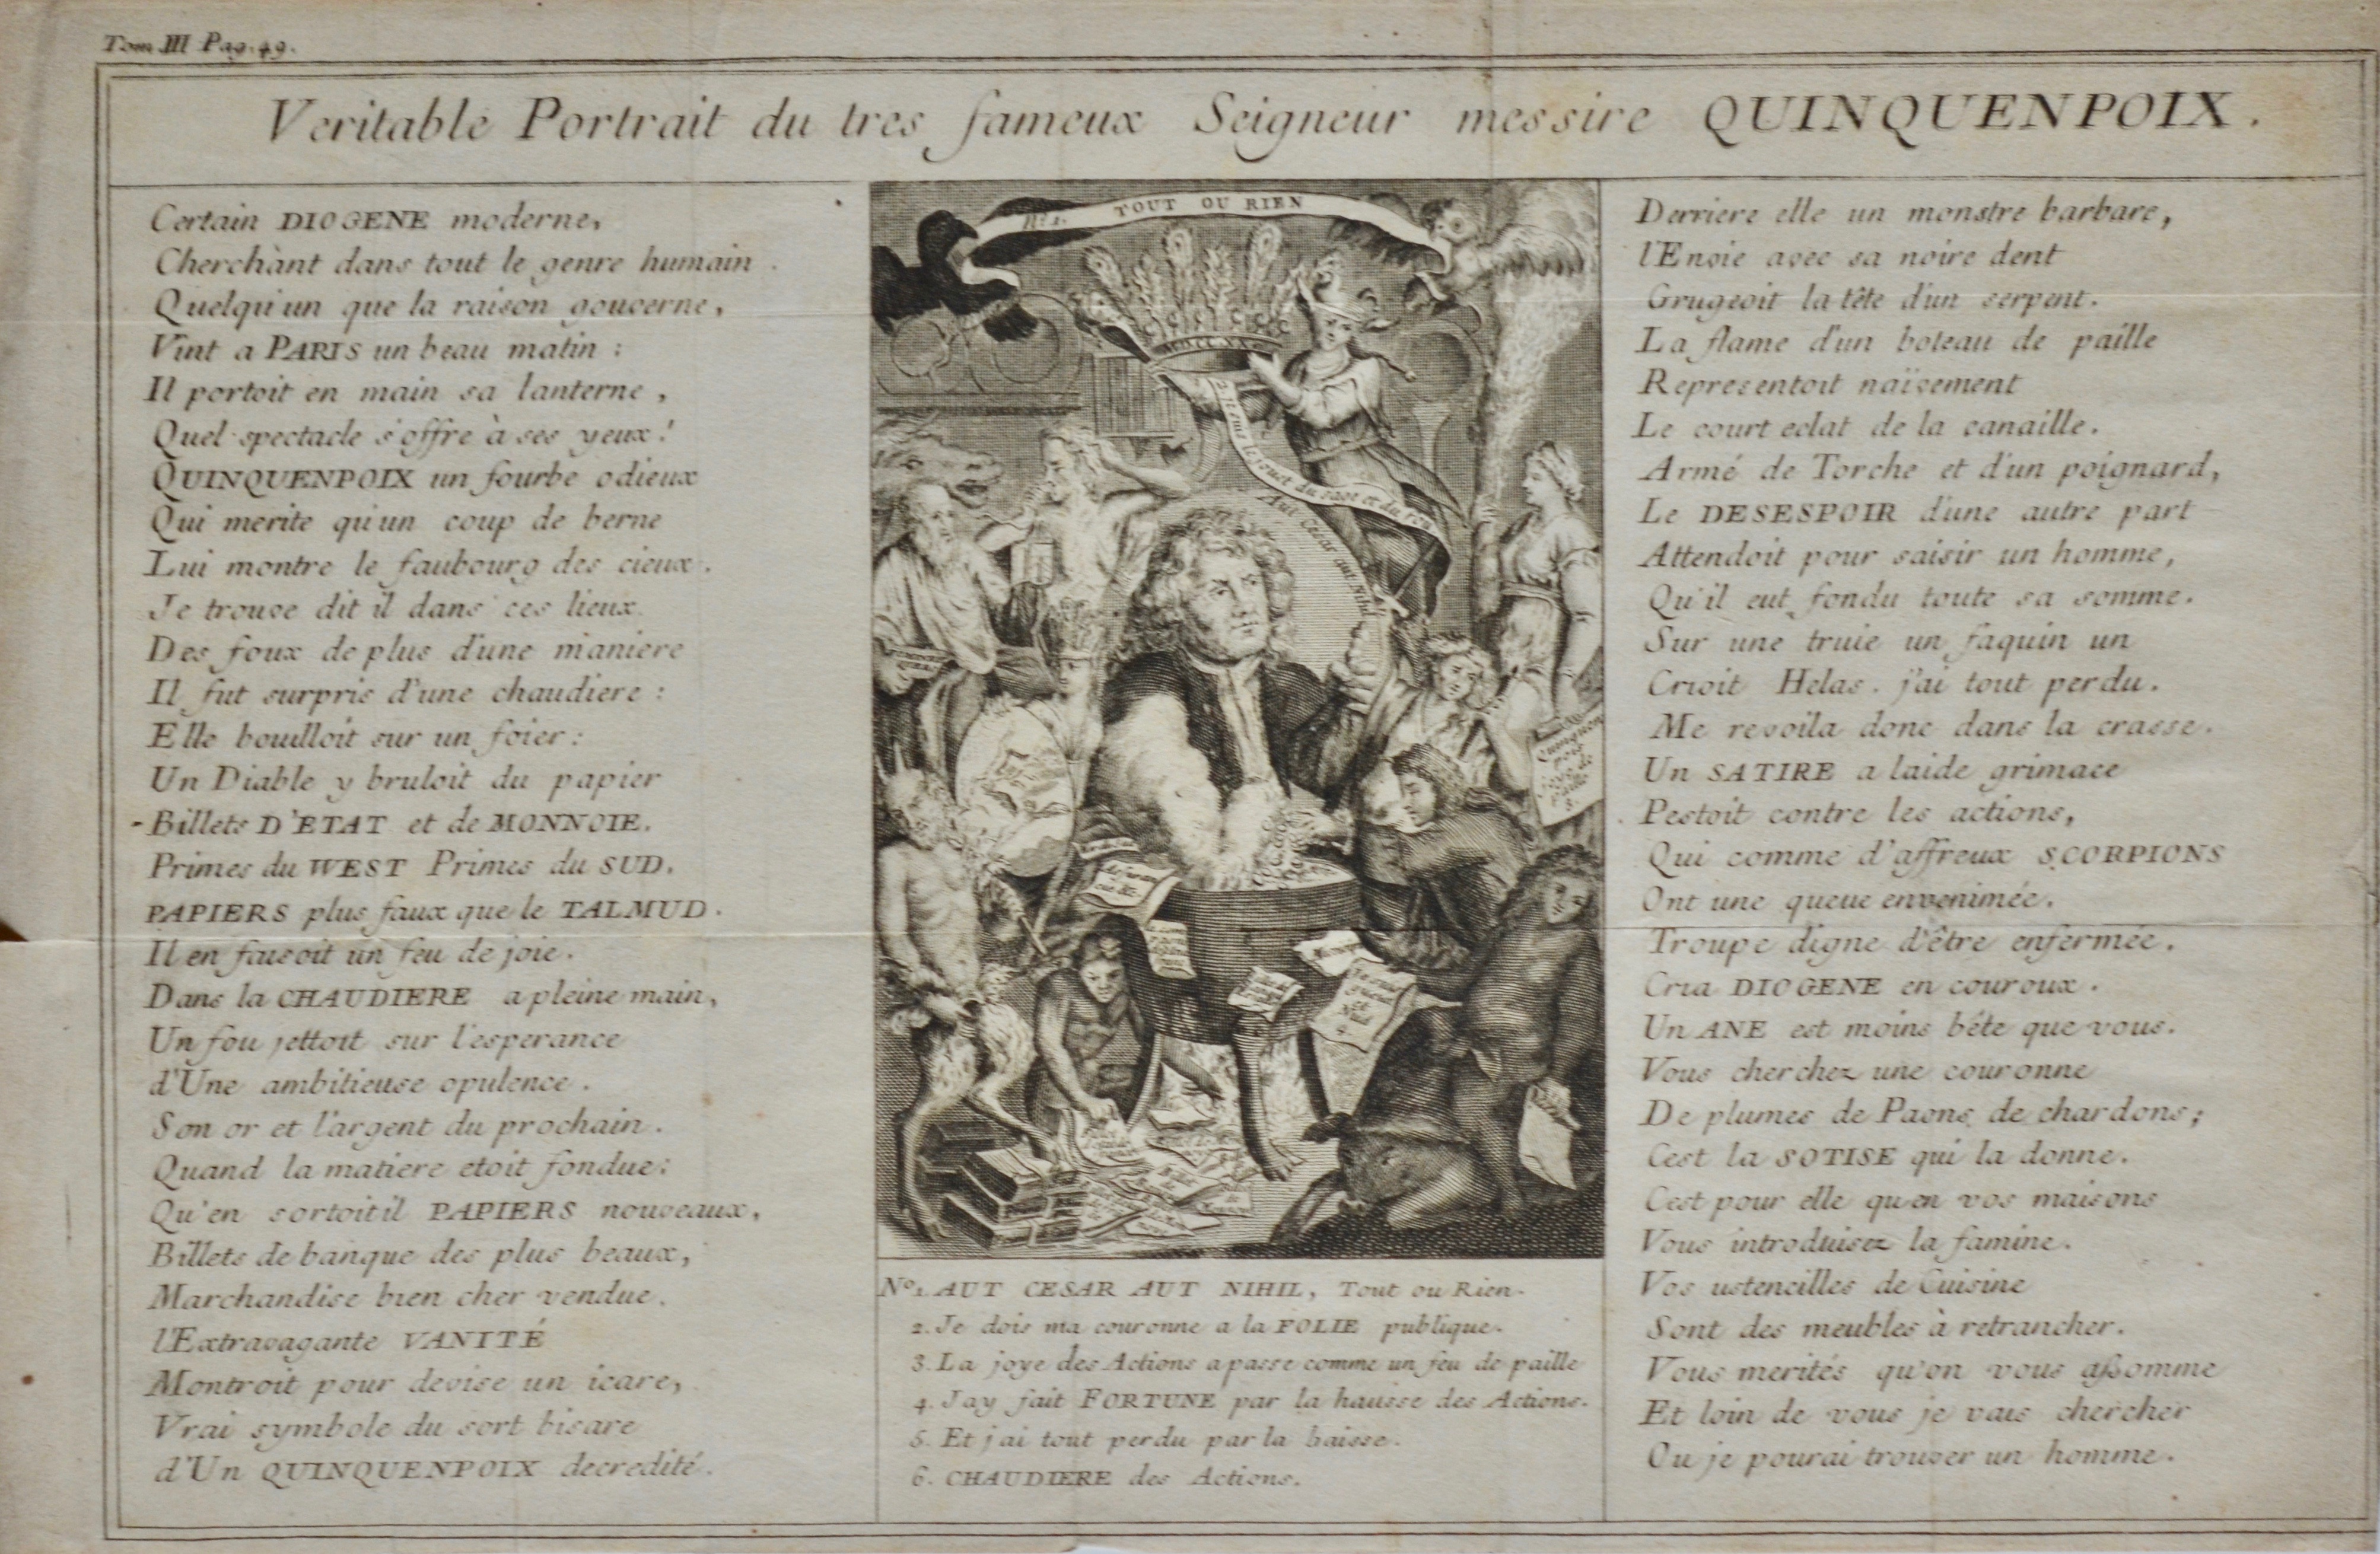 Tom III Pag. 49.
Veritable Portrait du tres fameux Seigneur messire QUINQUENPOIX.
Certain DIOGENE moderne,
Cherchant dans tout le genre humain
Quelqu'un que la raison gouverne,
Vint a PARIS un beau matin :
Il portoit en main sa lanterne ,
Quel spectacle s'offre à ses yeux !
QUINQUENPOIX un fourbe odieux
Qui merite qu'un coup de berne
Lui montre le faubourg des cieux.
Je trouve dit il dans ces lieux
Des foux de plus d'une maniere
Il fut surpris d'une chaudiere :
Elle bouilloit sur un foier :
Un Diable y bruloit du papier
Billets D'ETAT et de MONNOIE.
Primes du WEST Primes du SUD.
PAPIERS plus faux que le TALMUD.
Il en faisoit un feu de joie.
Dans la CHAUDIERE a pleine main,
Un fou jettoit sur l'esperance
d'Une ambitieuse opulence .
Son or et l'argent du prochain .
Quand la matiere etoit fondue :
Qu'en sortoit il PAPIERS nouveaux,
Billets de banque des plus beaux,
Marchandise bien cher vendue.
l'Extravagante VANITÉ
Montroit pour devise un icare,
Vrai symbole du sort bisare
d'Un QUINQUENPOIX decredité.
No. 1. TOUT OU RIEN
MDCCXX
Aut Cesar aut Nihil
Quinquenpoix
N.o 1 AUT CESAR AUT NIHIL, Tout ou Rien.
2. Je dois ma couronne a la FOLIE publique.
3. La joye des Actions a passe comme un feu de paille
4. Jay fait FORTUNE par la hausse des Actions.
5. Et j'ai tout perdu par la baisse.
6. CHAUDIERE des Actions.
Derriere elle un monstre barbare,
l'Envie avec sa noire dent
Grugeoit la tête d'un serpent.
La flame d'un boteau de paille
Representoit naïvement
Le court eclat de la canaille.
Armé de Torche et d'un poignard,
Le DESESPOIR d'une autre part
Attendoit pour saisir un homme,
Qu'il eut fondu toute sa somme.
Sur une truie un faquin un
Crioit Helas . j'ai tout perdu.
Me revoila donc dans la crasse.
Un SATIRE a laide grimace
Pestoit contre les actions,
Qui comme d'affreux SCORPIONS
Ont une queue envenimée.
Troupe digne d'être enfermée.
Cria DIOGENE en couroux .
Un ANE est moins bête que vous.
Vous cherchez une couronne
De plumes de Paons de chardons ;
Cest la SOTISE qui la donne.
Cest pour elle qu'en vos maisons
Vous introduisez la famine.
Vos ustencilles de Cuisine
Sont des meubles à retrancher.
Vous merités qu'on vous aßomme
Et loin de vous je vais chercher
Ou je pourai trouver un homme.